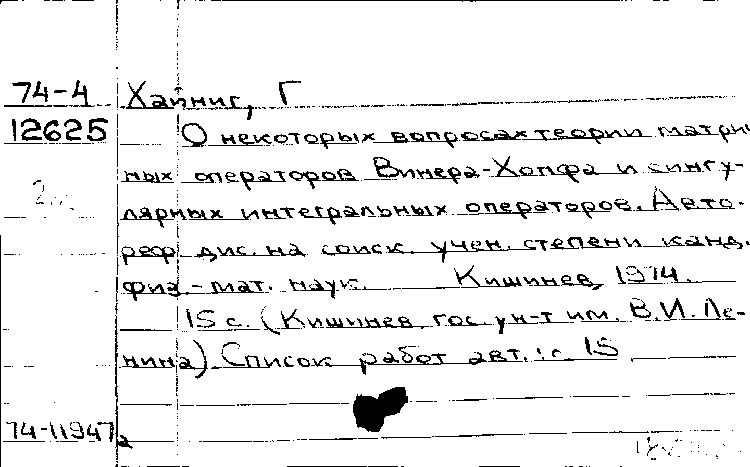 74-4 Хайниг, Г
12625 О некоторых вопросах теории матри
ных операторов Винера-Хопфа и сингу-
лярных интегральных операторов. Авто-
реф. дис. на соиск. учен. степени канд.
физ.-мат. наук. Кишинев, 1974.
15 с. (Кишинев. гос. ун-т им. В.И. Ле-
нина). Список работ авт.: с. 15
74-11947а